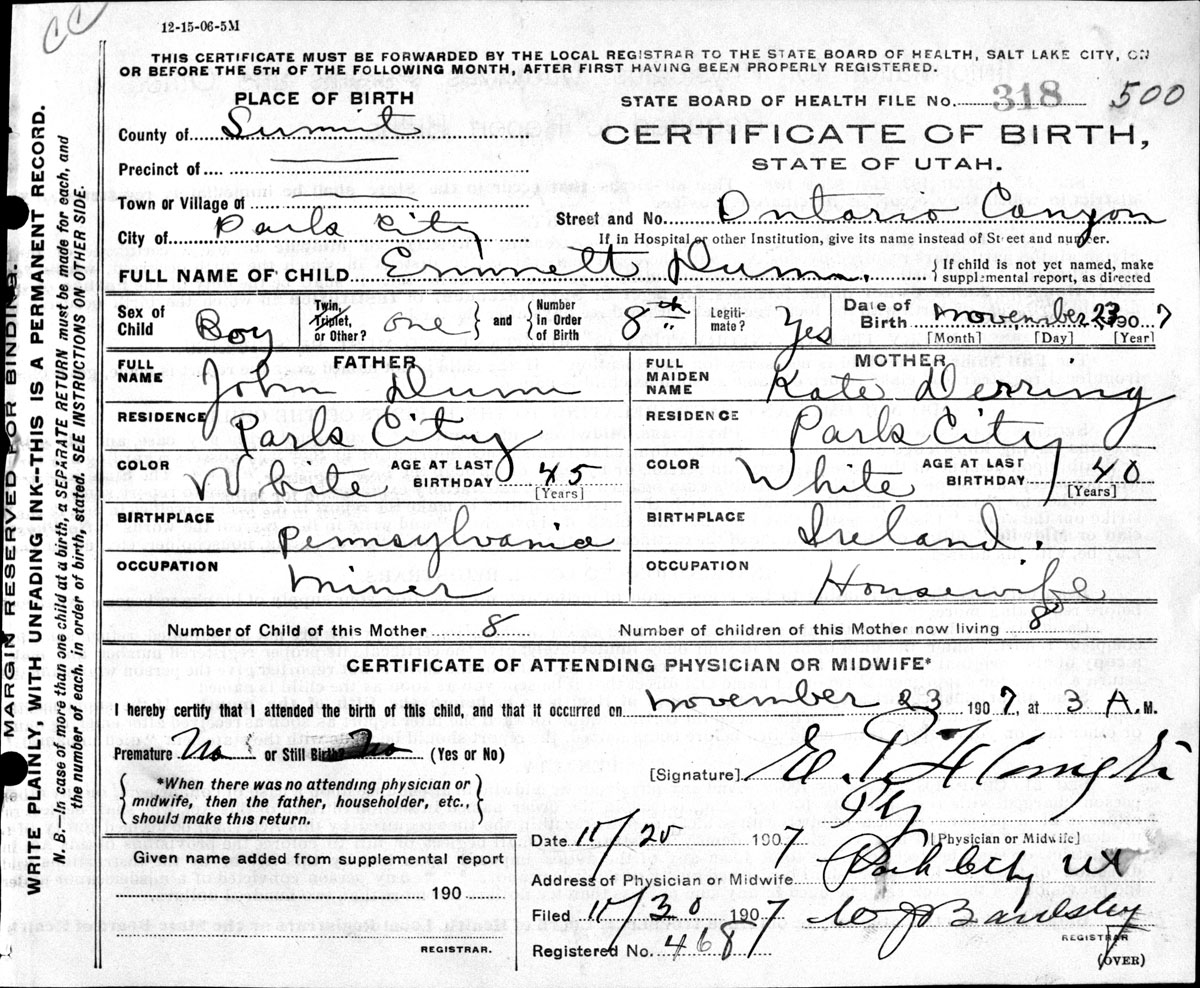 CC
12-15-06-5M
THIS CERTIFICATE MUST BE FORWARDED BY THE LOCAL REGISTRAR TO THE STATE BOARD OF HEALTH, SALT LAKE CITY, ON
OR BEFORE THE 5TH OF THE FOLLOWING MONTH, AFTER FIRST HAVING BEEN PROPERLY REGISTERED.
MARGIN RESERVED FOR BINDING.
WRITE PLAINLY, WITH UNFADING INK--THIS IS A PERMANENT RECORD.
N. B.—In case of more than one child at a birth, a SEPARATE RETURN must be made for each, and
the number of each, in order of birth, stated. SEE INSTRUCTIONS ON OTHER SIDE.
PLACE OF BIRTH
County of Summit
Precinct of
Town or Village of
City of Park City
STATE BOARD OF HEALTH FILE No. 318 500
CERTIFICATE OF BIRTH,
STATE OF UTAH.
Street and No. Ontario Canyon
If in Hospital or other Institution, give its name instead of Street and number.
FULL NAME OF CHILD Emmett {If child is not yet named, make
supplemental report, as directed
Sex of Child Boy Twin, Triplet, or Other? one } and { Number in Order of Birth 8th Legiti- mate? Yes Date of Birth November 23 1907
[Month] [Day] [Year]
FATHER
FULL NAME John
RESIDENCE Park City
COLOR White AGE AT LAST BIRTHDAY 45
[Years]
BIRTHPLACE Pennsylvania
OCCUPATION Miner
MOTHER
FULL MAIDEN NAME Kate Derring
RESIDENCE Park City
COLOR White AGE AT LAST BIRTHDAY 40
[Years]
BIRTHPLACE Ireland.
OCCUPATION Housewife
Number of Child of this Mother 8 Number of children of this Mother now living 8
CERTIFICATE OF ATTENDING PHYSICIAN OR MIDWIFE*
I hereby certify that I attended the birth of this child, and that it occurred on November 23 1907, at 3 A. M.
Premature No or Still Birth? No (Yes or No)
{ *When there was no attending physician or
midwife, then the father, householder, etc.,
should make this return. }
Given name added from supplemental report
190
REGISTRAR.
[Signature]
Date 11/20 1907 [Physician or Midwife]
Address of Physician or Midwife Park City Ut
Filed 11/30 1907
REGISTRAR
Registered No. 468
(OVER)